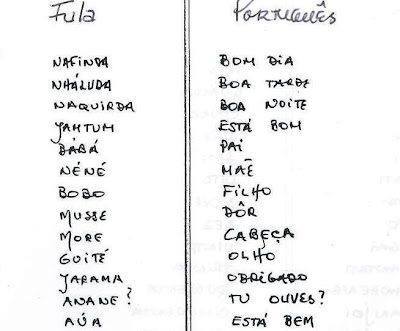 Fula Português
NAFINDA BOM DIA
NHÁLUDA BOA TARDE
NAQUIRDA BOA NOITE
JAMTUM ESTÁ BOM
BÁBÁ PAI
NÉNÉ MÃE
BOBO FILHO
MUSSE DÔR
MORE CABEÇA
GUITÉ OLHO
JARAMA OBRIGADO
ANANE? TU OUVES?
AÚA ESTÁ BEM